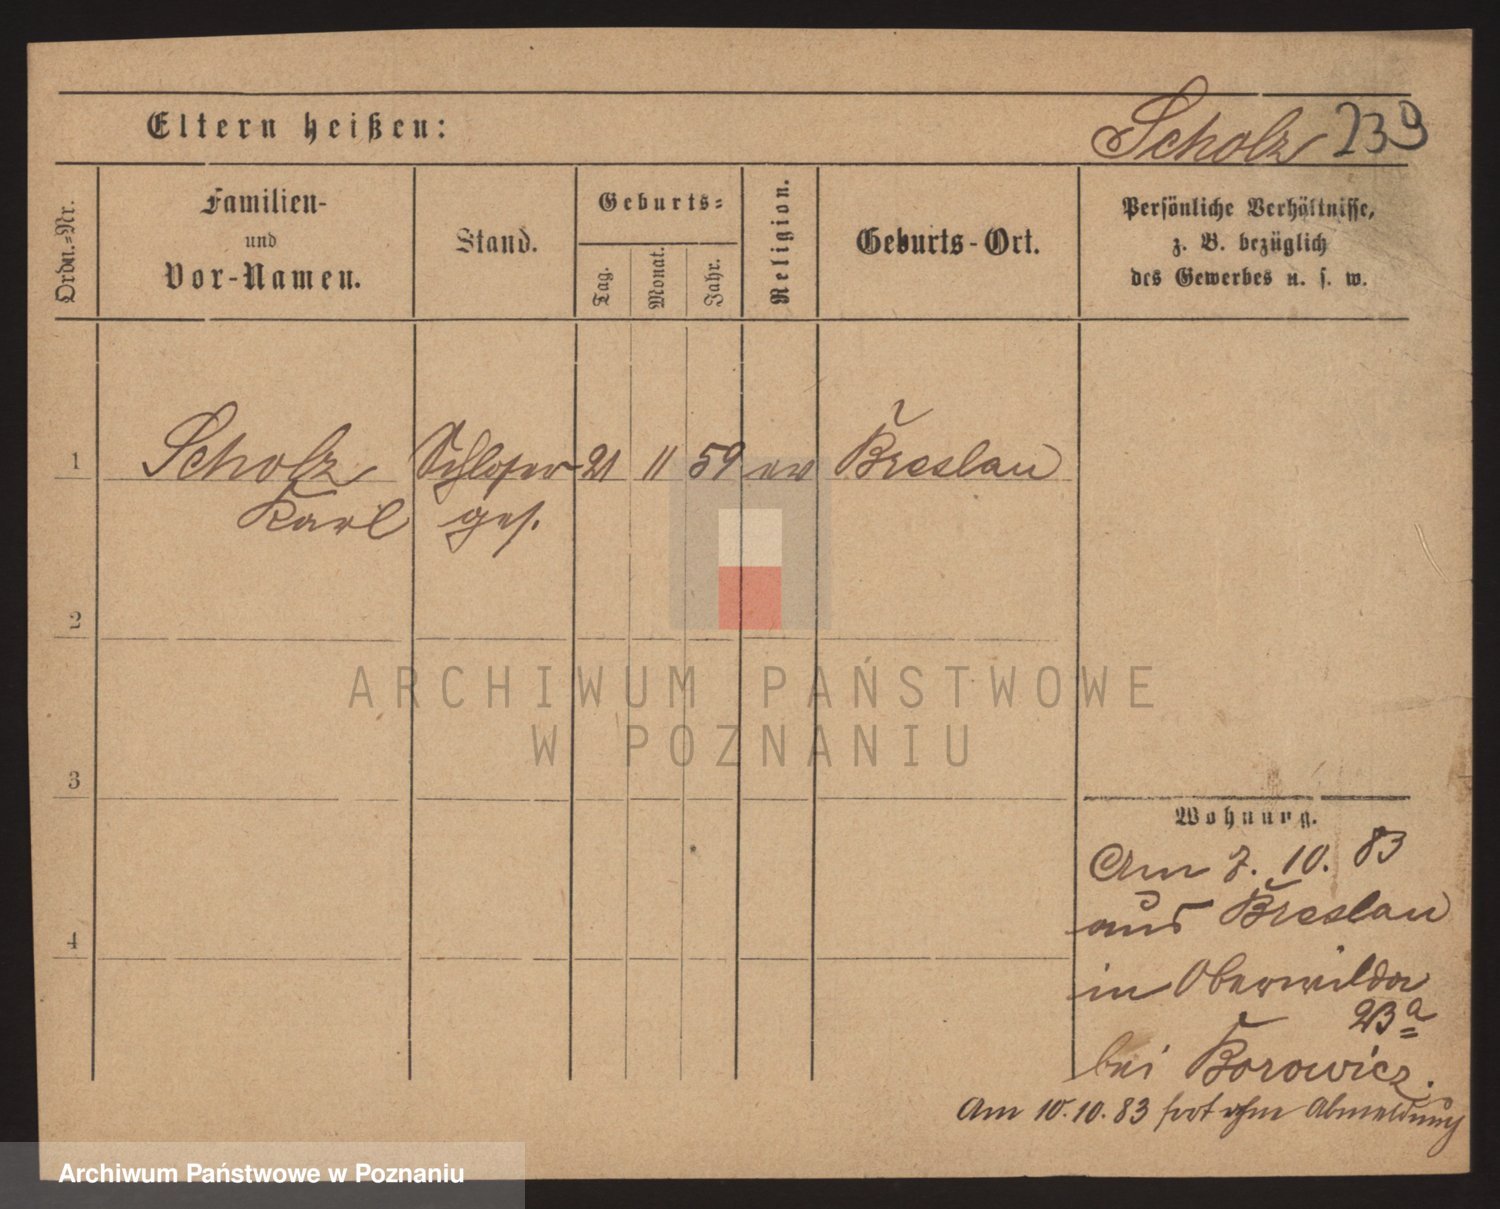 Eltern heißen: Scholz 239
Ordn.-Nr.
Familien-
und
Vor-Namen.
Stand.
Geburts-
Tag.
Monat.
Jahr.
Religion.
Geburts-Ort.
Persönliche Verhältnisse,
z. B. bezüglich
des Gewerbes u. s. w.
1 Scholz Schlosser 21 11 59 ev Breslau
Karl ges.
2
3
4
Wohnung.
Am 7. 10. 83
aus Breslau
in Oberwilda
23 a
bei Borowicz.
Am 10.10.83 fort ohne Abmeldung
ARCHIWUM PAŃSTWOWE
W POZNANIU
Archiwum Państwowe w Poznaniu